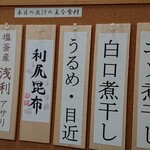 本日の出汁の主な食材
白口煮干し
うるめ・目近
利尻昆布
塩釜産
浅利
アサリ